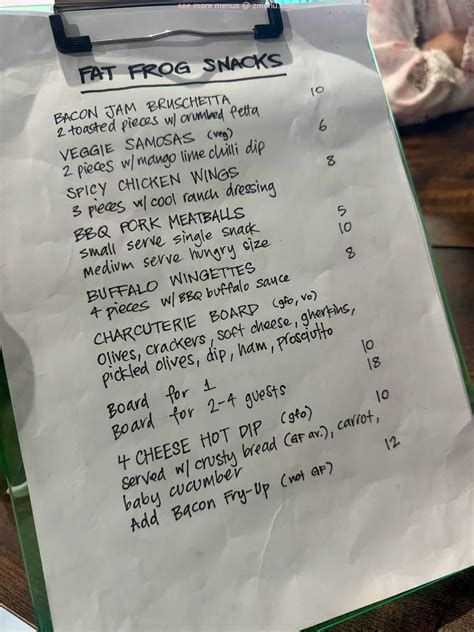 see more menus @ zmenu.com
FAT FROG SNACKS
BACON JAM BRUSCHETTA 10
2 toasted pieces w/ crumbed fetta
VEGGIE SAMOSAS (veg) 6
2 pieces w/ mango lime chilli dip
SPICY CHICKEN WINGS 8
3 pieces w/ cool ranch dressing
BBQ PORK MEATBALLS
small serve single snack 5
medium serve hungry size 10
BUFFALO WINGETTES 8
4 pieces w/ BBQ buffalo sauce
CHARCUTERIE BOARD (gfo, vo)
olives, crackers, soft cheese, gherkins,
pickled olives, dip, ham, prosciutto
Board for 1 10
Board for 2-4 guests 18
4 CHEESE HOT DIP (gfo) 10
served w/ crusty bread (GF av.), carrot,
baby cucumber
Add Bacon Fry-Up (not GF) 12